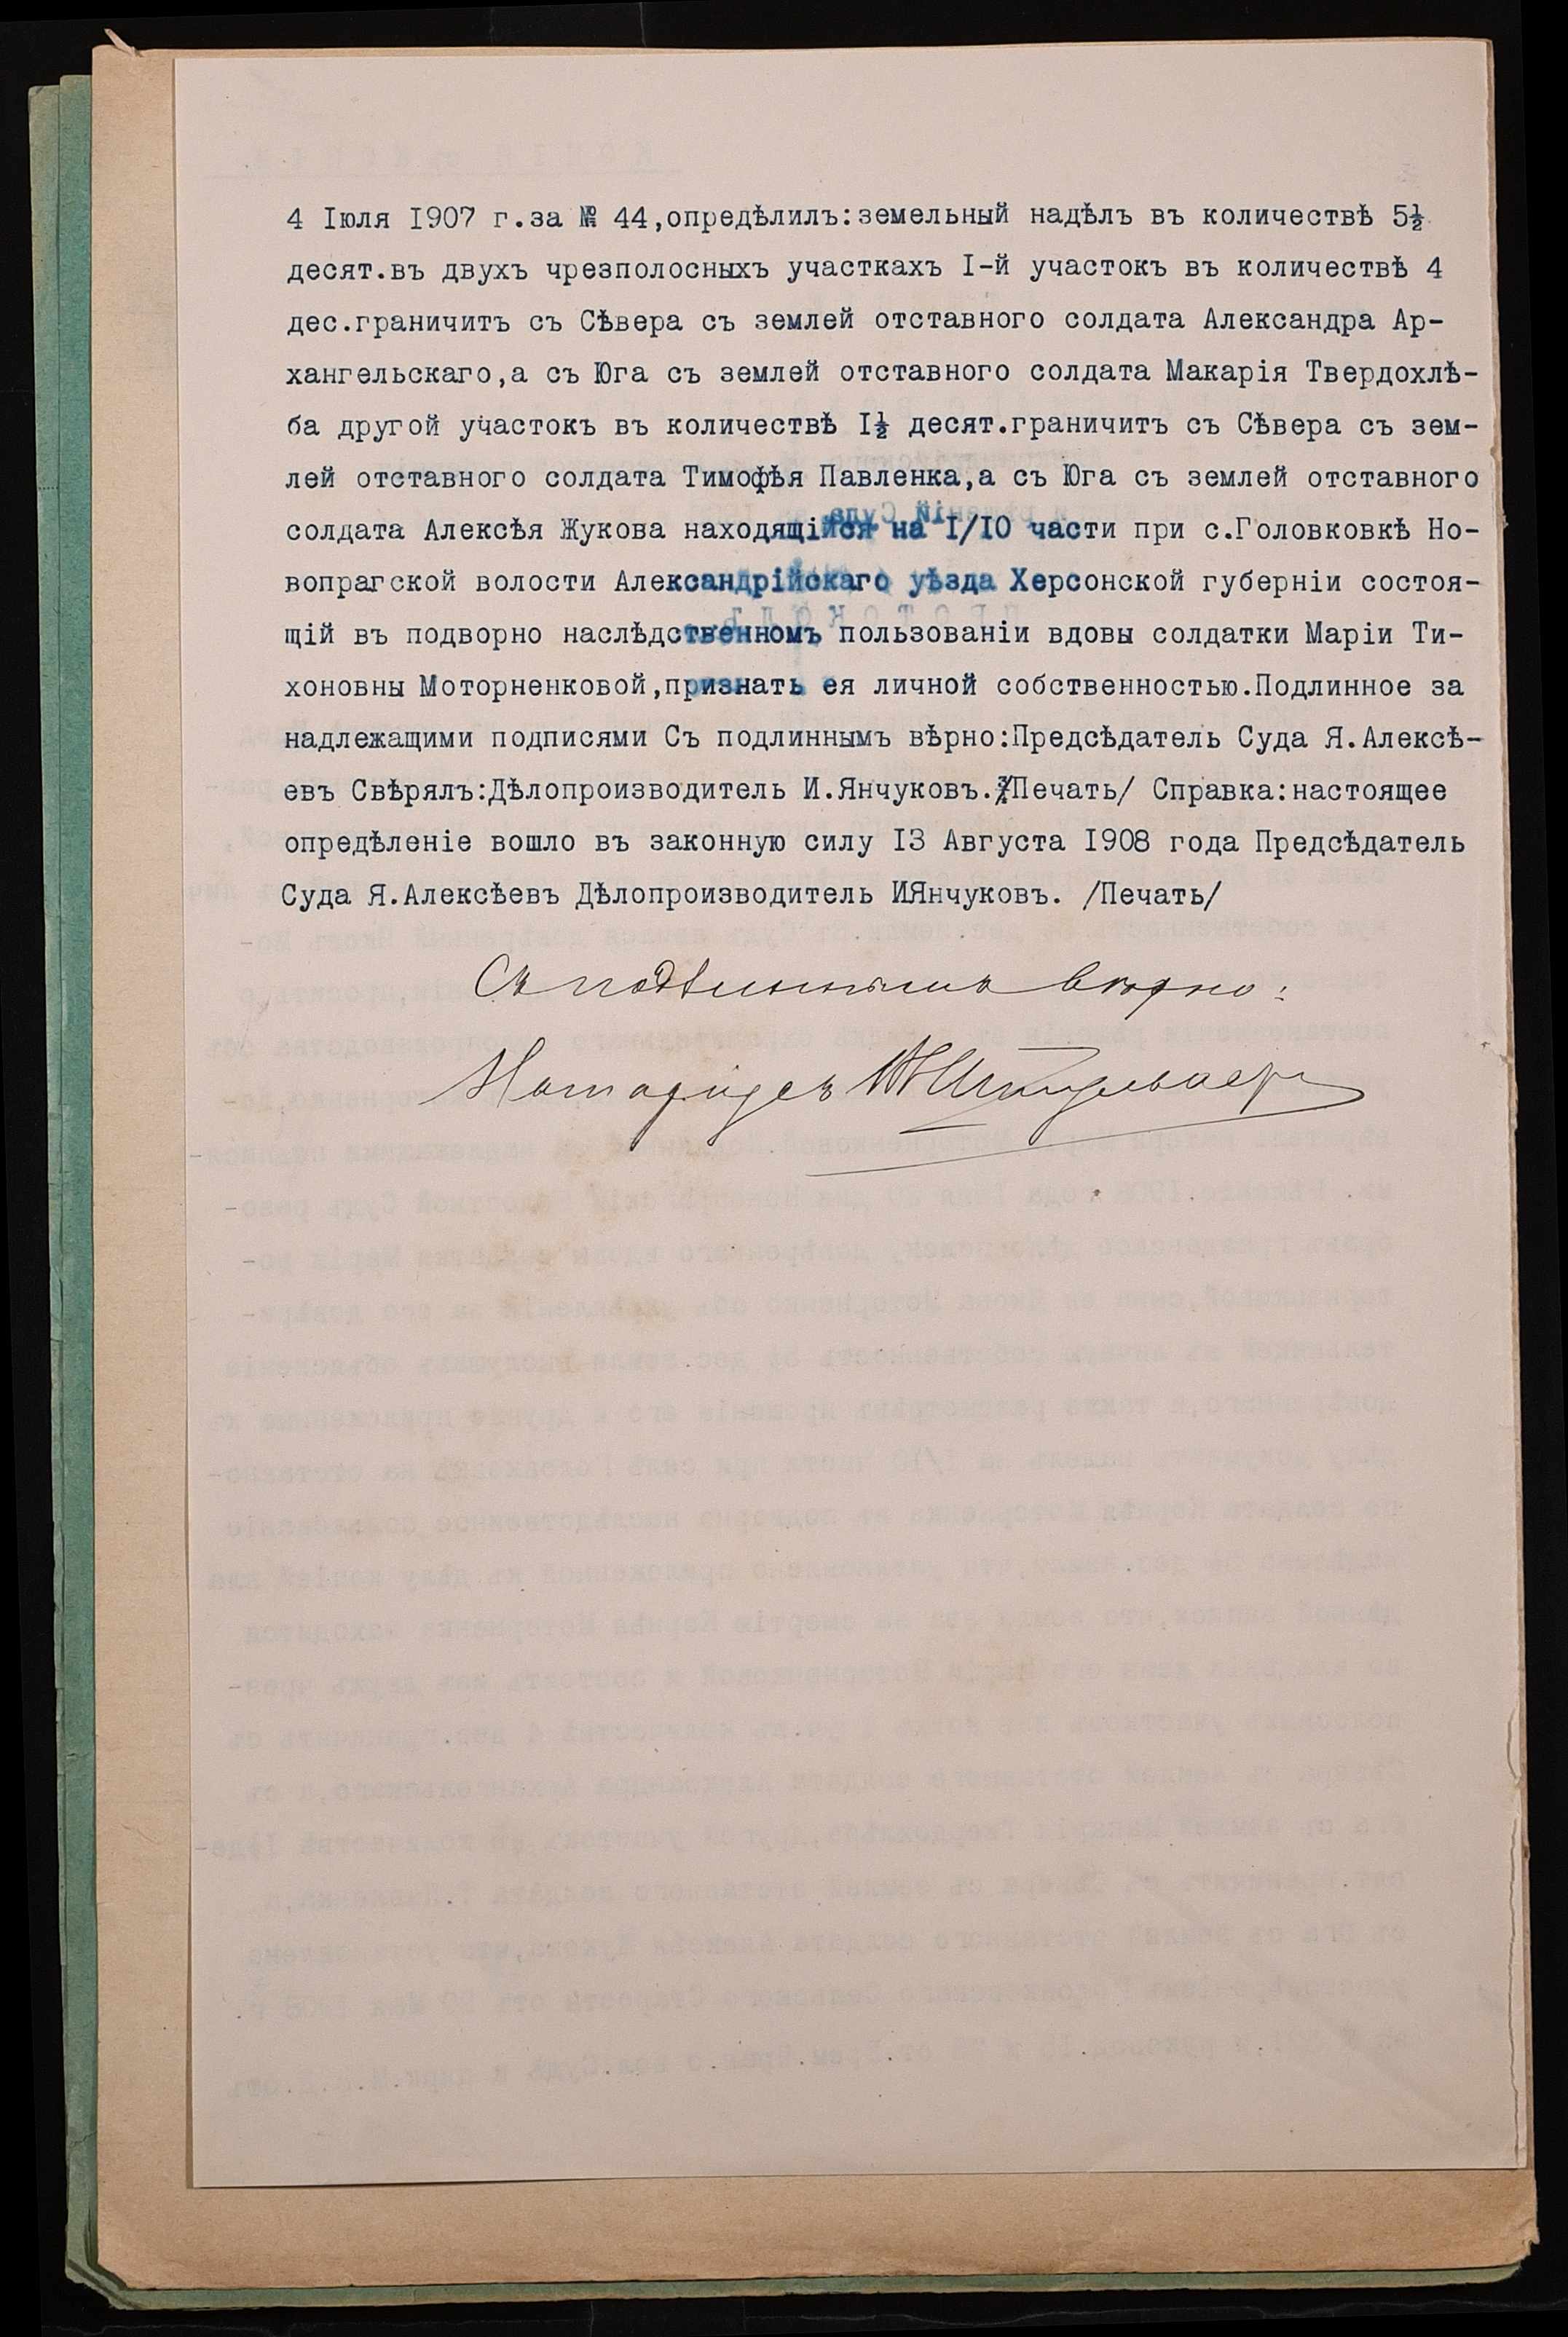 4 Іюля I907 г.за № 44,опредѣлилъ:земельный надѣлъ въ количествѣ 5½
десят.въ двухъ чрезполосныхъ участкахъ I-й участокъ въ количествѣ 4
дес.граничитъ съ Сѣвера съ землей отставного солдата Александра Ар-
хангельскаго,а съ Юга съ землей отставного солдата Макарія Твердохлѣ-
ба другой участокъ въ количествѣ I½ десят.граничитъ съ Сѣвера съ зем-
лей отставного солдата Тимофѣя Павленка,а съ Юга съ землей отставного
солдата Алексѣя Жукова находящійся на I/I0 части при с.Головковкѣ Но-
вопрагской волости Александрійскаго уѣзда Херсонской губерніи состоя-
щій въ подворно наслѣдственномъ пользованіи вдовы солдатки Маріи Ти-
хоновны Моторненковой,признать ея личной собственностью.Подлинное за
надлежащими подписями Съ подлиннымъ вѣрно:Предсѣдатель Суда Я.Алексѣ-
евъ Свѣрялъ:Дѣлопроизводитель И.Янчуковъ./Печать/ Справка:настоящее
опредѣленіе вошло въ законную силу I3 Августа I908 года Предсѣдатель
Суда Я.Алексѣевъ Дѣлопроизводитель ИЯнчуковъ. /Печать/
Съ подлиннымъ вѣрно:
Нотаріусъ